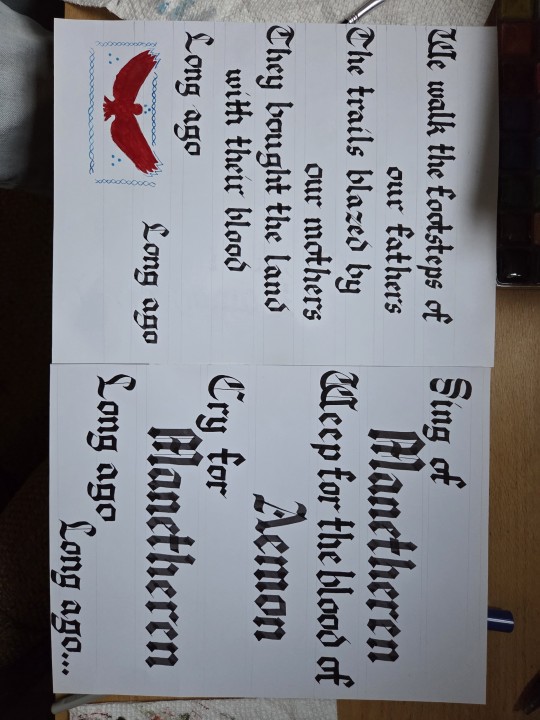 We walk the footsteps of
our fathers
The trails blazed by
our mothers
They bought the land
with their blood
Long ago
Long ago
Sing of
Manetheren
Weep for the blood of
Aemon
Cry for
Manetheren
Long ago
Long ago...